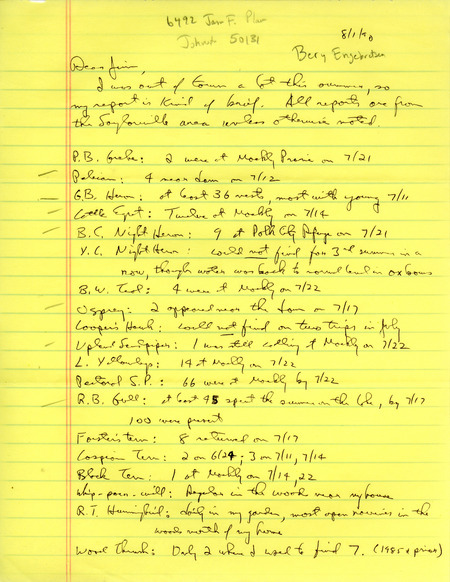 6492
50131
8/1/90
Dear Jim,
I was out of town a lot this summer, so
my report is kind of brief. All reports are from
the Saylorville area unless otherwise noted.
P.B. Grebe: 2 were at Mockly Prairie on 7/21
Pelican: 4 near dam on 7/12
G.B. Heron: at least 36 nests, most with young 7/11
Cattle Egret: Twelve at Mockly on 7/14
B.C. Night Heron: 9 at Polk City Refuge on 7/21
Y.C. Night Heron: could not find for 3rd summer in a
row, though water was back to normal level in oxbows
B.W. Teal: 4 were at Mockly on 7/22
Osprey: 2 appeared near the dam on 7/17
Cooper's Hawk: could not find on two trips in July
Upland Sandpiper: 1 was still calling at Mockly on 7/22
L. Yellowlegs: 14 at Mockly on 7/22
Pectoral S.P.: 66 were at Mockly by 7/22
R.B. Gull: at least 45 spent the summer on the lake, by 7/17
100 were present
Forster's tern: 8 returned on 7/17
Caspian Tern: 2 on 6/24; 3 on 7/11, 7/14
Black Tern: 1 at Mockly on 7/14, 22
Whip-poor-will: Regular in the woods near my house
R.T. Hummingbird: daily in my garden, most open in the
woods north of my home
Wood Thrush: Only 2 where I used to find 7. (1985 & prior)